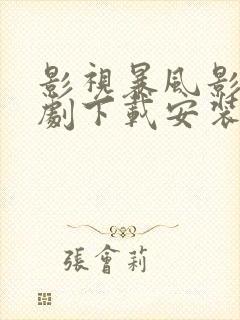 影視暴風影
劇下載安裝
張會莉